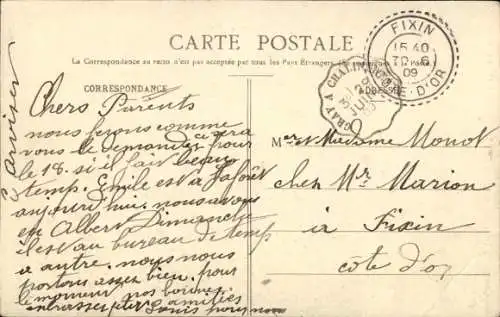 CARTE POSTALE
La Correspondance au recto n'est pas acceptée par tous les Pays Étrangers
CORRESPONDANCE
ADRESSE
FIXIN
15 40
30 - 6
09
CÔTE-D'OR
GRAY A CHALIN
Chers Parents
nous ferons comme
vous le demandez ce sera pour
le 18. si il fait beau
temp. Emile est a la forêt
aujourd'hui. nous avons
eu Albert Dimanche
il est au bureau de temp
a autre. nous nous
portons assez bien. pour
le moment nos bonnes
amitiés
Louis pour nous
Mr et Madame Monot
chez Mr Marion
à Fixin
côte d'or